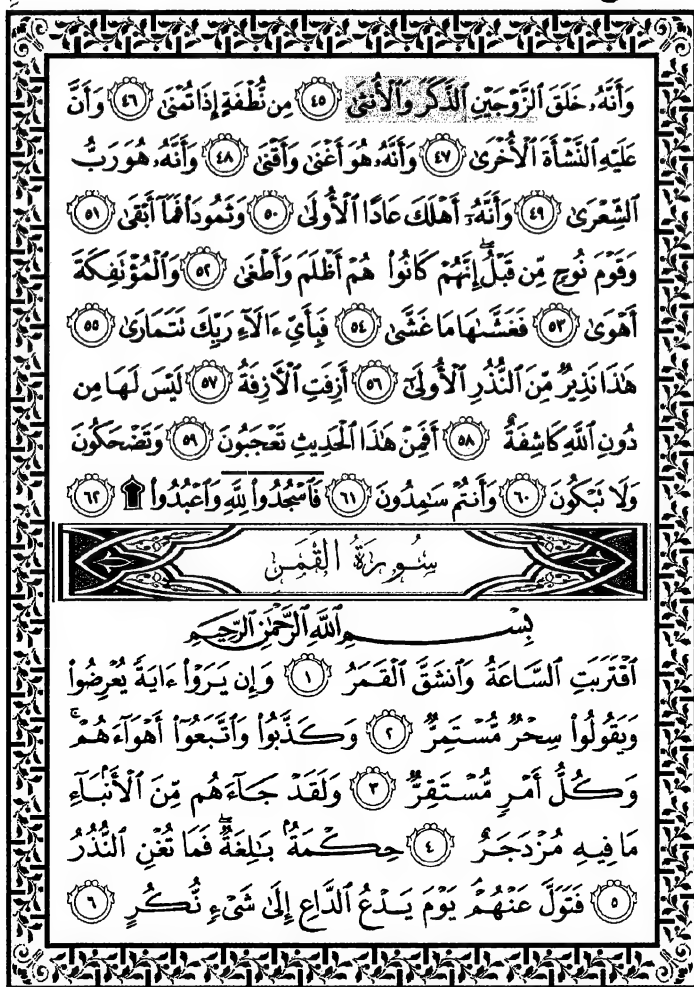 وَأَنَّهُۥ خَلَقَ ٱلزَّوْجَيْنِ ٱلذَّكَرَ وَٱلْأُنثَىٰ ٤٥ مِن نُّطْفَةٍ إِذَا تُمْنَىٰ ٤٦ وَأَنَّ
عَلَيْهِ ٱلنَّشْأَةَ ٱلْأُخْرَىٰ ٤٧ وَأَنَّهُۥ هُوَ أَغْنَىٰ وَأَقْنَىٰ ٤٨ وَأَنَّهُۥ هُوَ رَبُّ
ٱلشِّعْرَىٰ ٤٩ وَأَنَّهُۥٓ أَهْلَكَ عَادًا ٱلْأُولَىٰ ٥٠ وَثَمُودَا۟ فَمَآ أَبْقَىٰ ٥١
وَقَوْمَ نُوحٍ مِّن قَبْلُ ۖ إِنَّهُمْ كَانُوا۟ هُمْ أَظْلَمَ وَأَطْغَىٰ ٥٢ وَٱلْمُؤْتَفِكَةَ
أَهْوَىٰ ٥٣ فَغَشَّىٰهَا مَا غَشَّىٰ ٥٤ فَبِأَىِّ ءَالَآءِ رَبِّكَ تَتَمَارَىٰ ٥٥
هَٰذَا نَذِيرٌ مِّنَ ٱلنُّذُرِ ٱلْأُولَىٰٓ ٥٦ أَزِفَتِ ٱلْأَزِفَةُ ٥٧ لَيْسَ لَهَا مِن
دُونِ ٱللَّهِ كَاشِفَةٌ ٥٨ أَفَمِنْ هَٰذَا ٱلْحَدِيثِ تَعْجَبُونَ ٥٩ وَتَضْحَكُونَ
وَلَا تَبْكُونَ ٦٠ وَأَنتُمْ سَٰمِدُونَ ٦١ فَٱسْجُدُوا۟ لِلَّهِ وَٱعْبُدُوا۟ ۩ ٦٢
سُورَةُ القَمَرِ
بِسْمِ ٱللَّهِ ٱلرَّحْمَٰنِ ٱلرَّحِيمِ
ٱقْتَرَبَتِ ٱلسَّاعَةُ وَٱنشَقَّ ٱلْقَمَرُ ١ وَإِن يَرَوْا۟ ءَايَةً يُعْرِضُوا۟
وَيَقُولُوا۟ سِحْرٌ مُّسْتَمِرٌّ ٢ وَكَذَّبُوا۟ وَٱتَّبَعُوٓا۟ أَهْوَآءَهُمْ ۚ
وَكُلُّ أَمْرٍ مُّسْتَقِرٌّ ٣ وَلَقَدْ جَآءَهُم مِّنَ ٱلْأَنۢبَآءِ
مَا فِيهِ مُزْدَجَرٌ ٤ حِكْمَةٌۢ بَٰلِغَةٌ ۖ فَمَا تُغْنِ ٱلنُّذُرُ
٥ فَتَوَلَّ عَنْهُمْ ۘ يَوْمَ يَدْعُ ٱلدَّاعِ إِلَىٰ شَىْءٍ نُّكُرٍ ٦